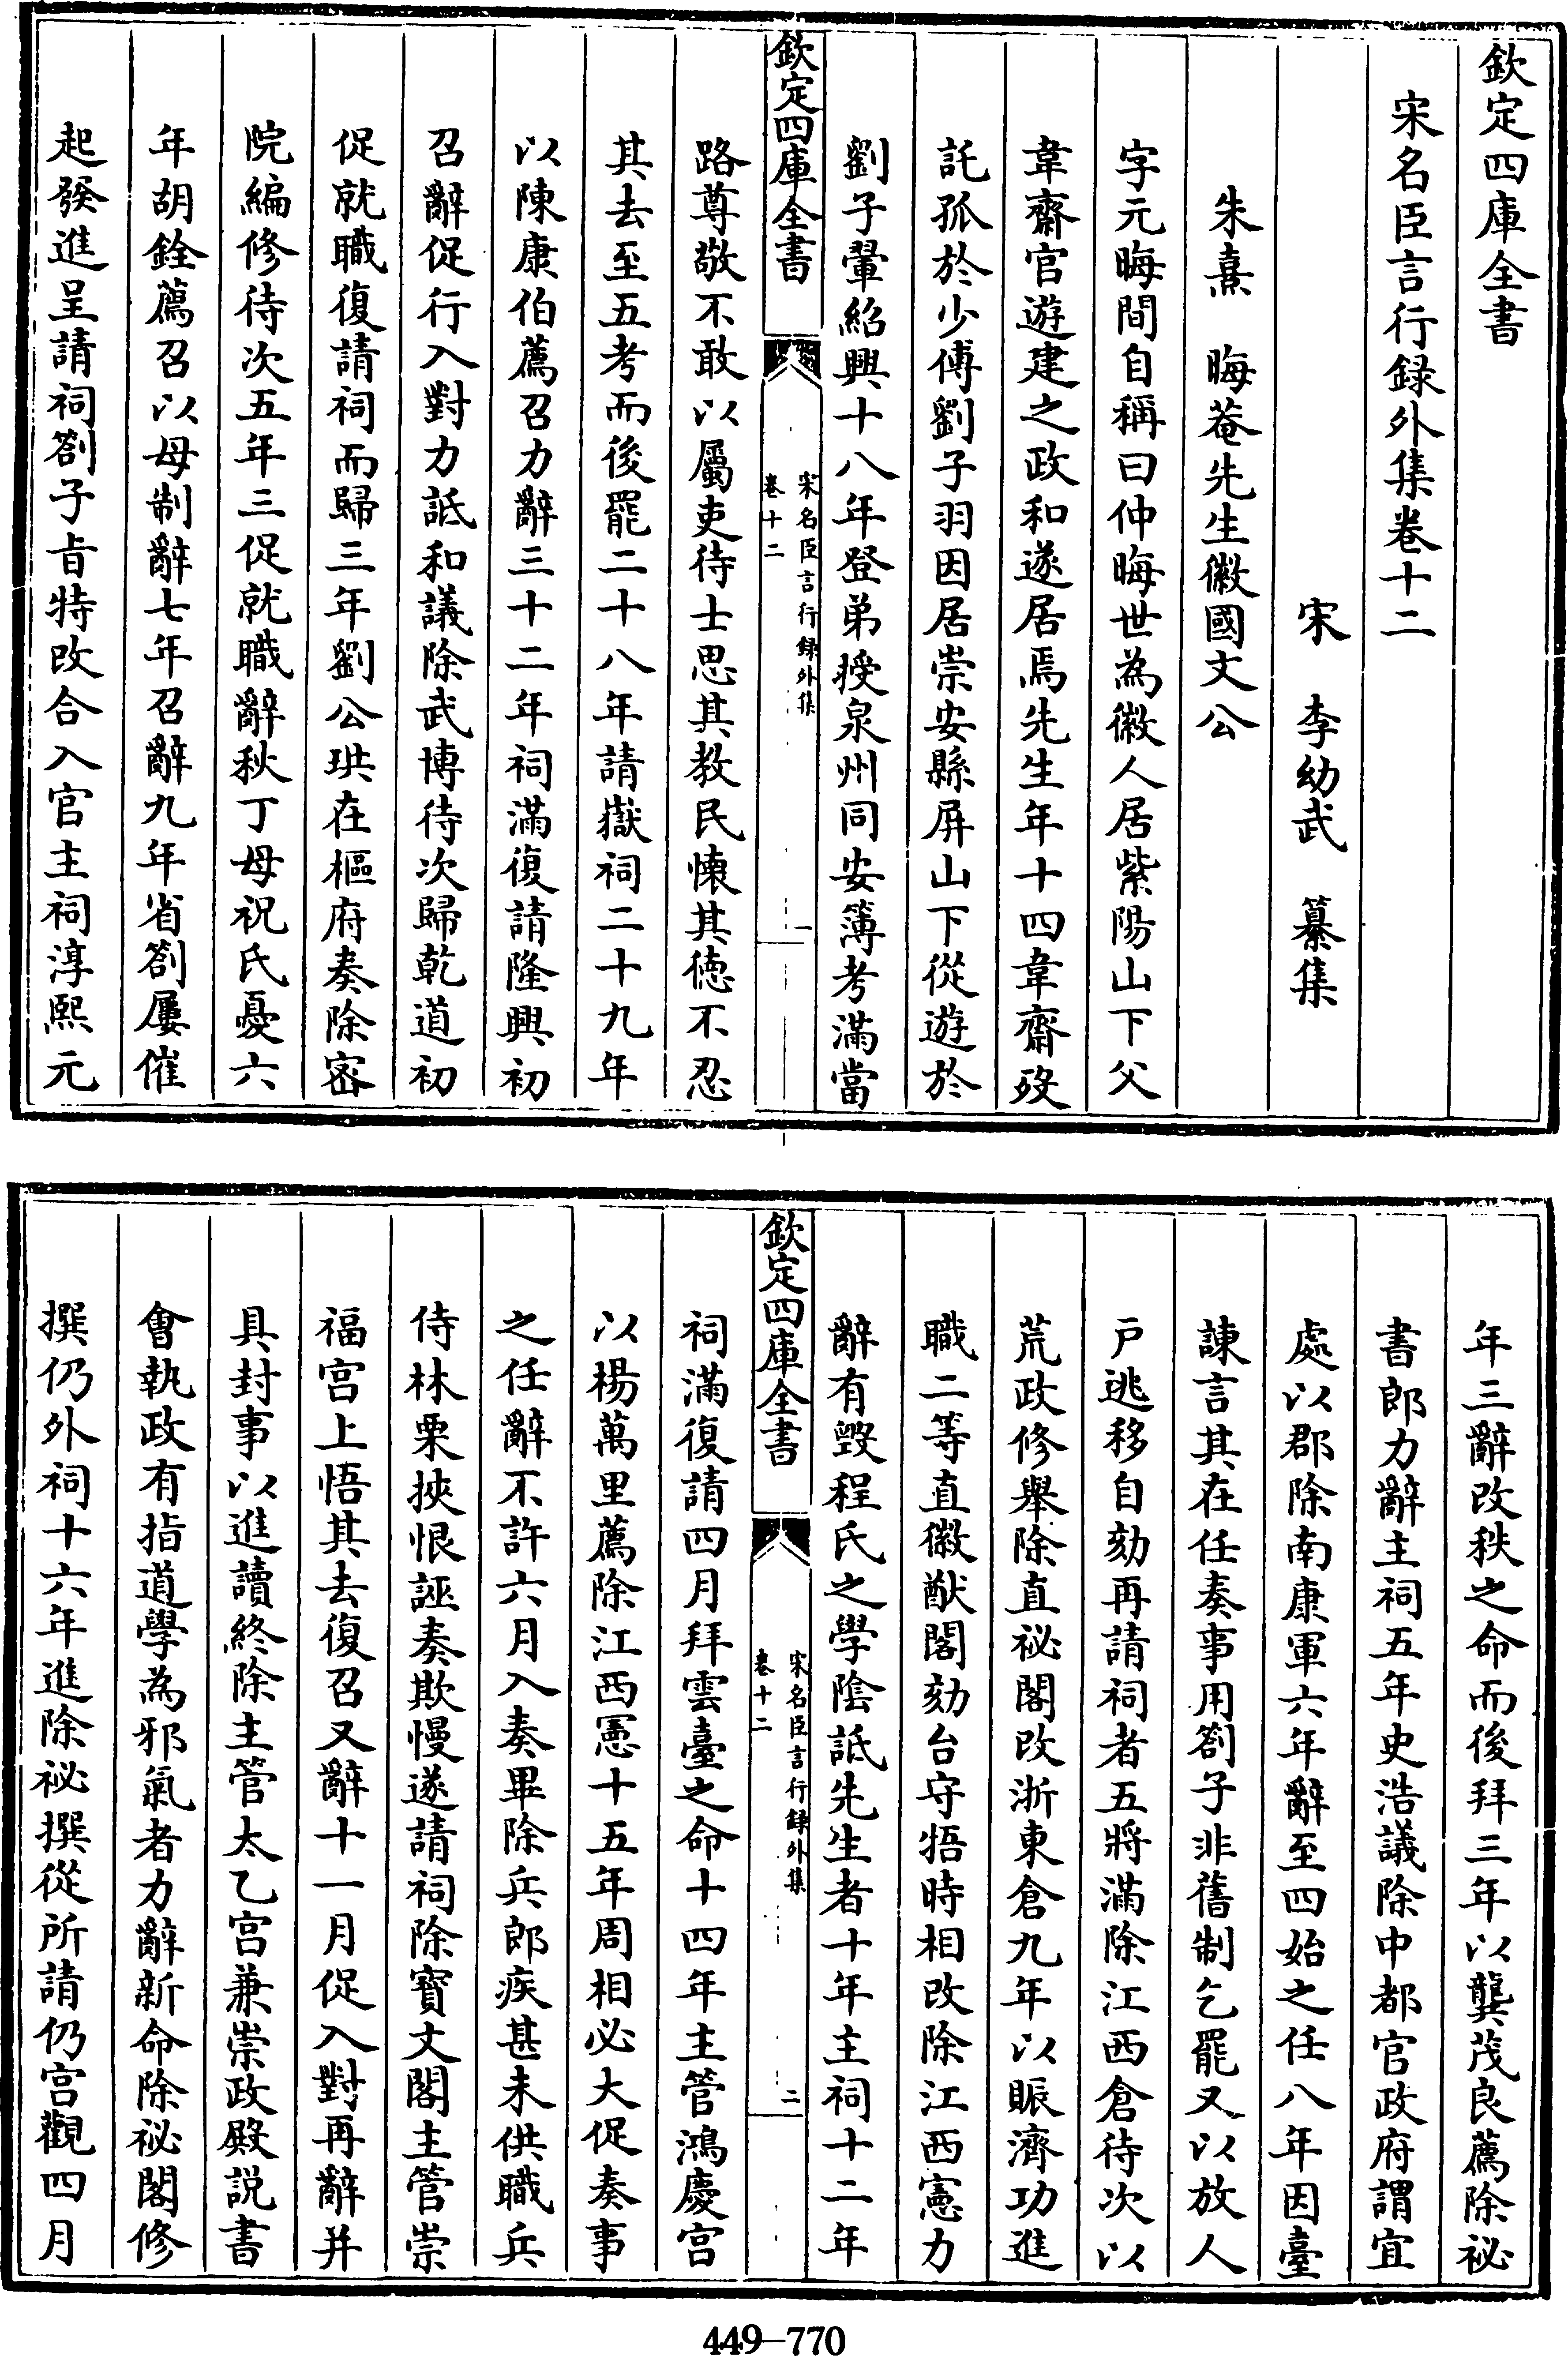 欽定四庫全書
宋名臣言行録外集卷十二
宋 李幼武 纂集
朱熹 晦菴先生徽國文公
字元晦間自稱曰仲晦世為徽人居紫陽山下父
韋齋官遊建之政和遂居焉先生年十四韋齋歿
託孤於少傅劉子羽因居崇安縣屏山下從遊於
劉子翬紹興十八年登弟授泉州同安簿考滿當
欽定四庫全書
宋名臣言行録外集
卷十二
一
路尊敬不敢以屬吏待士思其教民懐其徳不忍
其去至五考而後罷二十八年請嶽祠二十九年
以陳康伯薦召力辭三十二年祠滿復請隆興初
召辭促行入對力詆和議除武博待次歸乾道初
促就職復請祠而歸三年劉公珙在樞府奏除宻
院編修待次五年三促就職辭秋丁母祝氏憂六
年胡銓薦召以母制辭七年召辭九年省劄屢催
起發進呈請祠劄子㫖特改合入官主祠淳熙元
年三辭改秩之命而後拜三年以龔茂良薦除祕
書郎力辭主祠五年史浩議除中都官政府謂宜
處以郡除南康軍六年辭至四始之任八年因臺
諫言其在任奏事用劄子非舊制乞罷又以放人
户逃移自劾再請祠者五將滿除江西倉待次以
荒政修舉除直祕閣改浙東倉九年以賑濟功進
職二等直徽猷閣劾台守牾時相改除江西憲力
辭有毀程氏之學陰詆先生者十年主祠十二年
欽定四庫全書
宋名臣言行録外集
卷十二
二
祠滿復請四月拜雲臺之命十四年主管鴻慶宫
以楊萬里薦除江西憲十五年周相必大促奏事
之任辭不許六月入奏畢除兵郎疾甚未供職兵
侍林栗挾恨誣奏欺慢遂請祠除寳文閣主管崇
福宫上悟其去復召又辭十一月促入對再辭并
具封事以進讀終除主管太乙宫兼崇政殿説書
會執政有指道學為邪氣者力辭新命除祕閣修
撰仍外祠十六年進除祕撰從所請仍宫觀四月
449-770